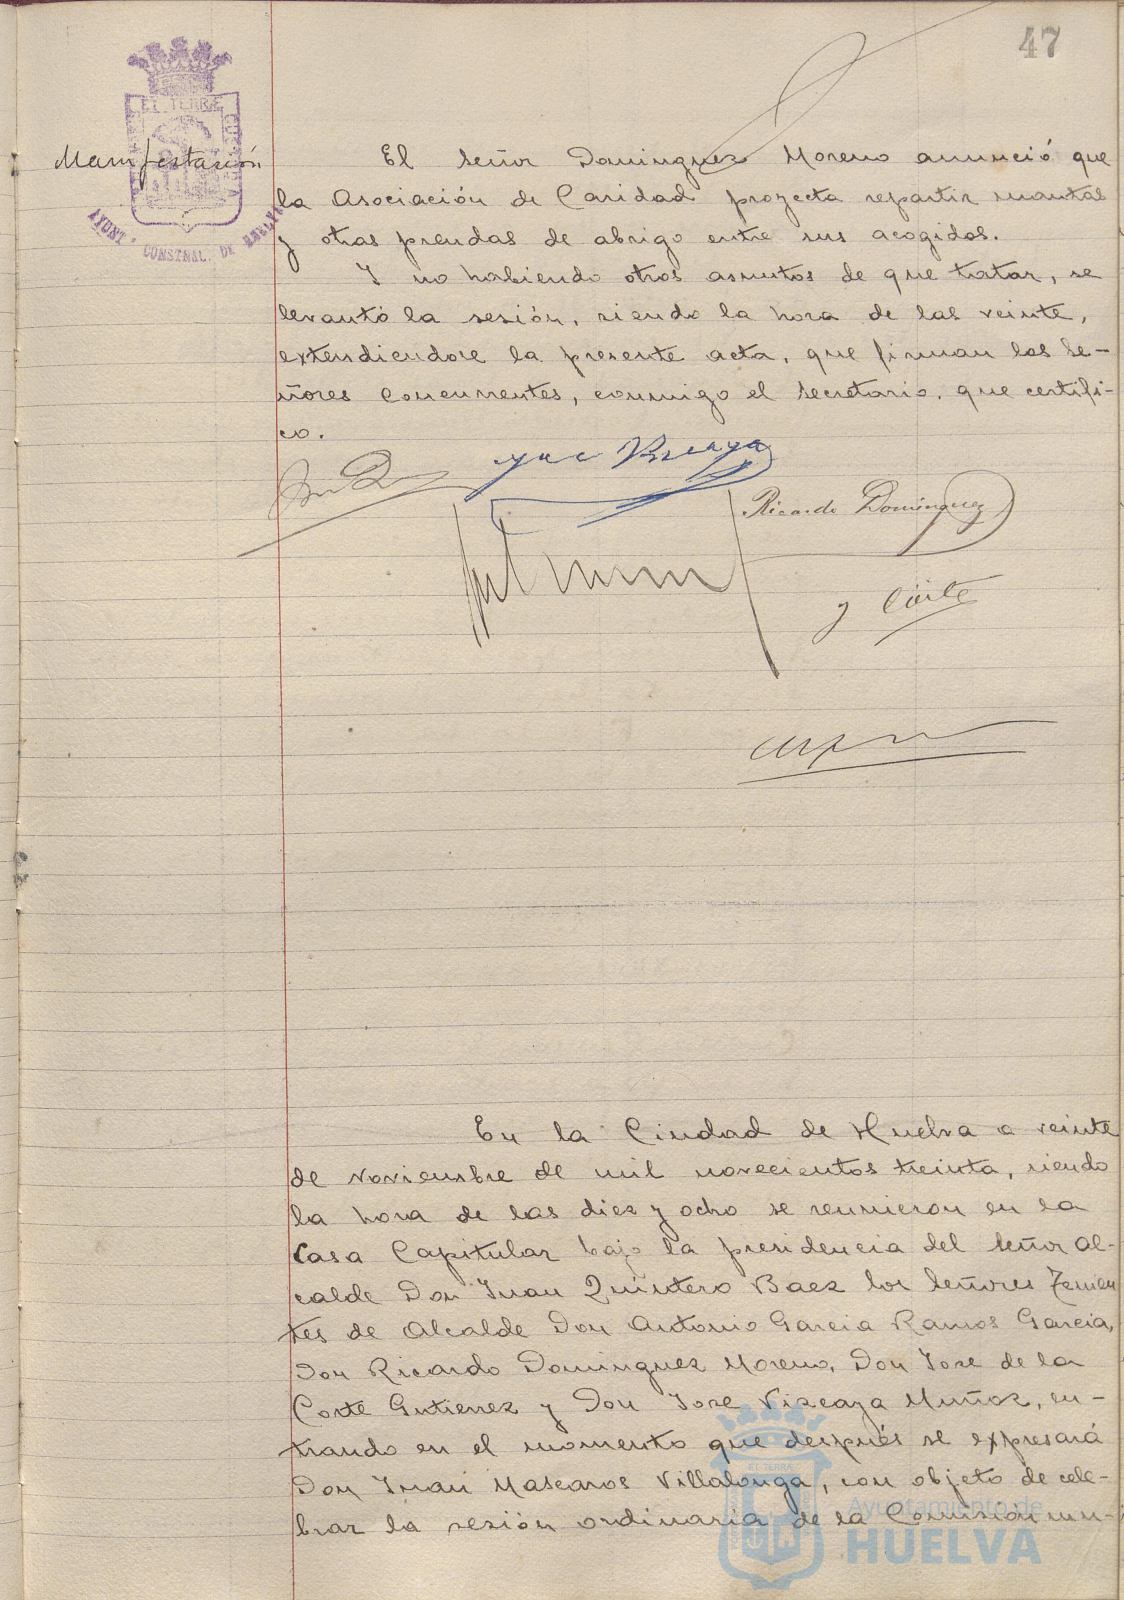 47
EL TERRÆ
AYUNT. CONSTNAL. DE HUELVA
Manifestación
El señor Dominguez Moreno anunció que
la Asociación de Caridad proyecta repartir mantas
y otras prendas de abrigo entre sus acogidos.
Y no habiendo otros asuntos de que tratar, se
levantó la sesión, siendo la hora de las veinte,
extendiendose la presente acta, que firman los se-
ñores concurrentes, conmigo el secretario, que certifi-
co.
Ricardo Dominguez
y Corte
En la Ciudad de Huelva a veinte
de noviembre de mil novecientos treinta, siendo
la hora de las diez y ocho se reunieron en la
Casa Capitular bajo la presidencia del señor Al-
calde Don Juan Quintero Baez los señores Tenien
tes de Alcalde Don Antonio Garcia Ramos Garcia,
Don Ricardo Dominguez Moreno, Don Jose de la
Corte Gutierrez y Don Jose Vizcaya Muñoz, en-
trando en el momento que después se expresará
Don Juan Mascaros Villalonga, con objeto de cele-
brar la sesión ordinaria de la Comisión mu-
Ayuntamiento de
HUELVA